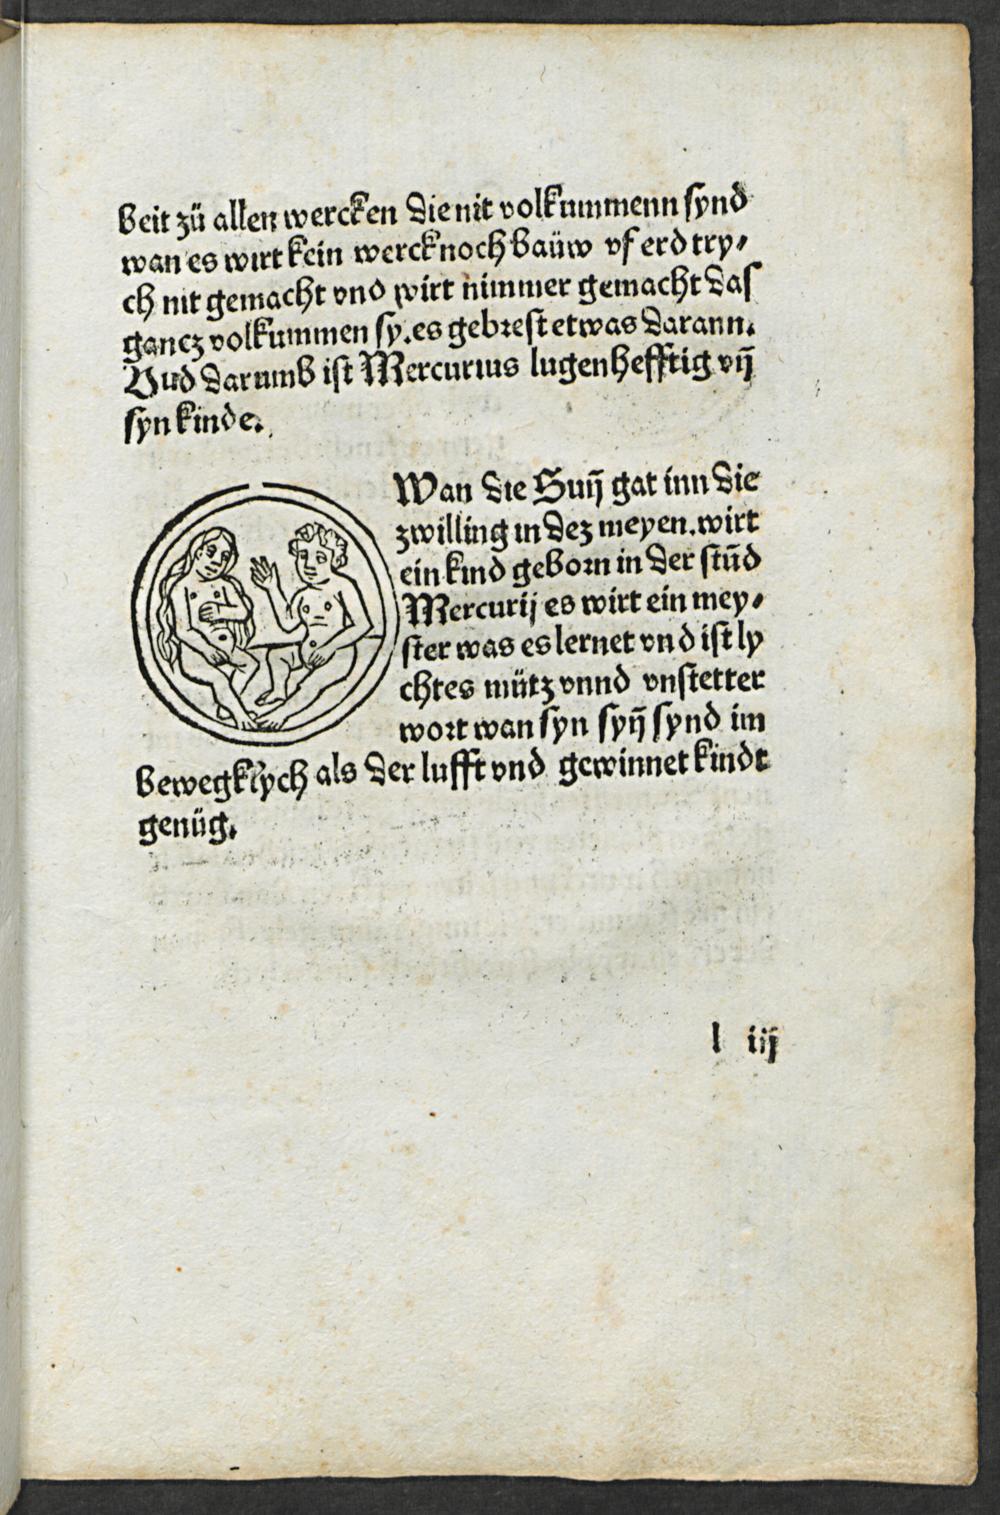 beit zü allen wercken die nit volkummenn synd
wan es wirt kein werck noch baüw vf erd try⸗
ch nit gemacht vnd wirt nimmer gemacht das
gancz volkummen sy. es gebrest etwas darann.
Vnd darumb ist Mercurius lugenhefftig vn̄
syn kinde.
Wan die Sun̄ gat inn die
zwilling in dez meyen. wirt
ein kind geborn in der stūd
Mercurij es wirt ein mey⸗
ster was es lernet vnd ist ly
chtes mütz vnnd vnstetter
wort wan syn syn̄ synd im
bewegklych als der lufft vnd gewinnet kinde
genüg.
l iij